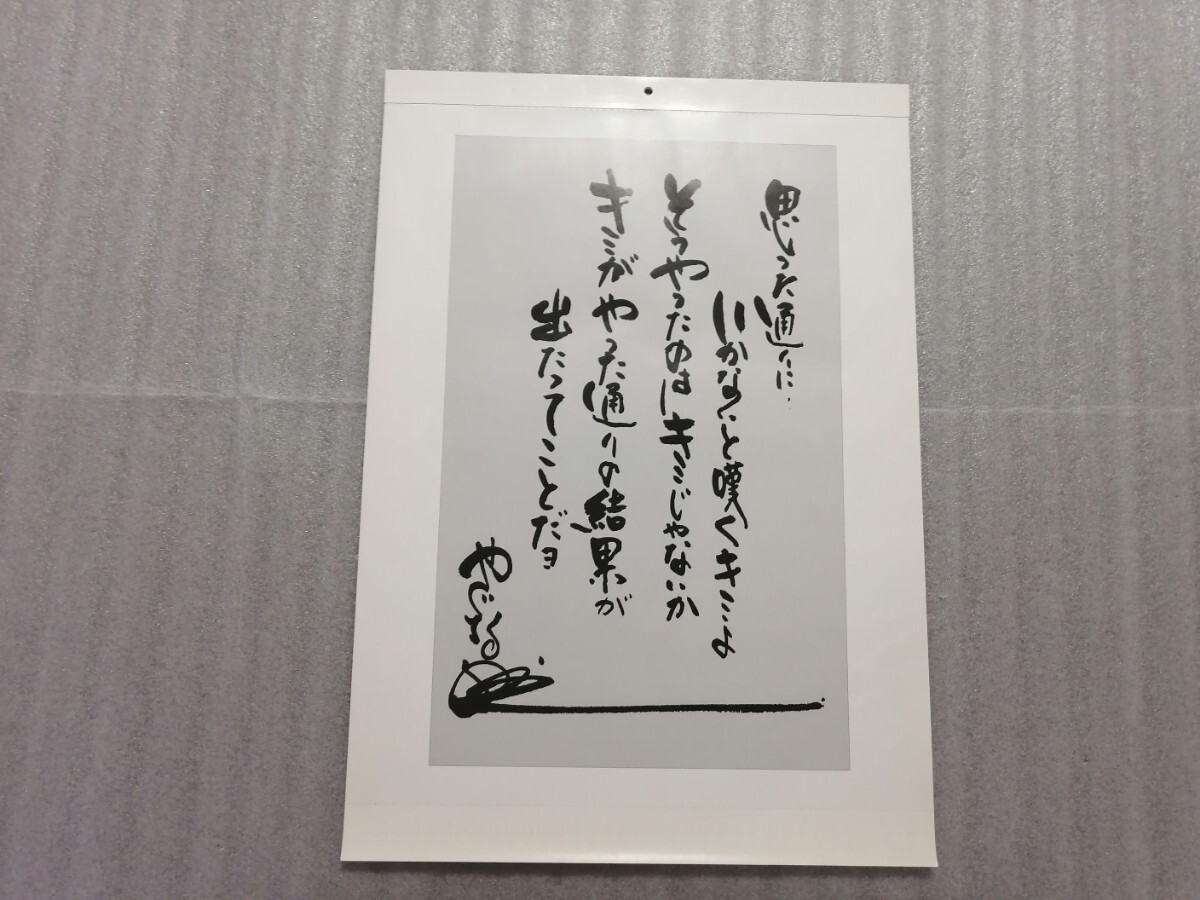 思った通りに
いかないと嘆くキミよ
そうやったのはキミじゃないか
キミがやった通りの結果が
出たってことだヨ